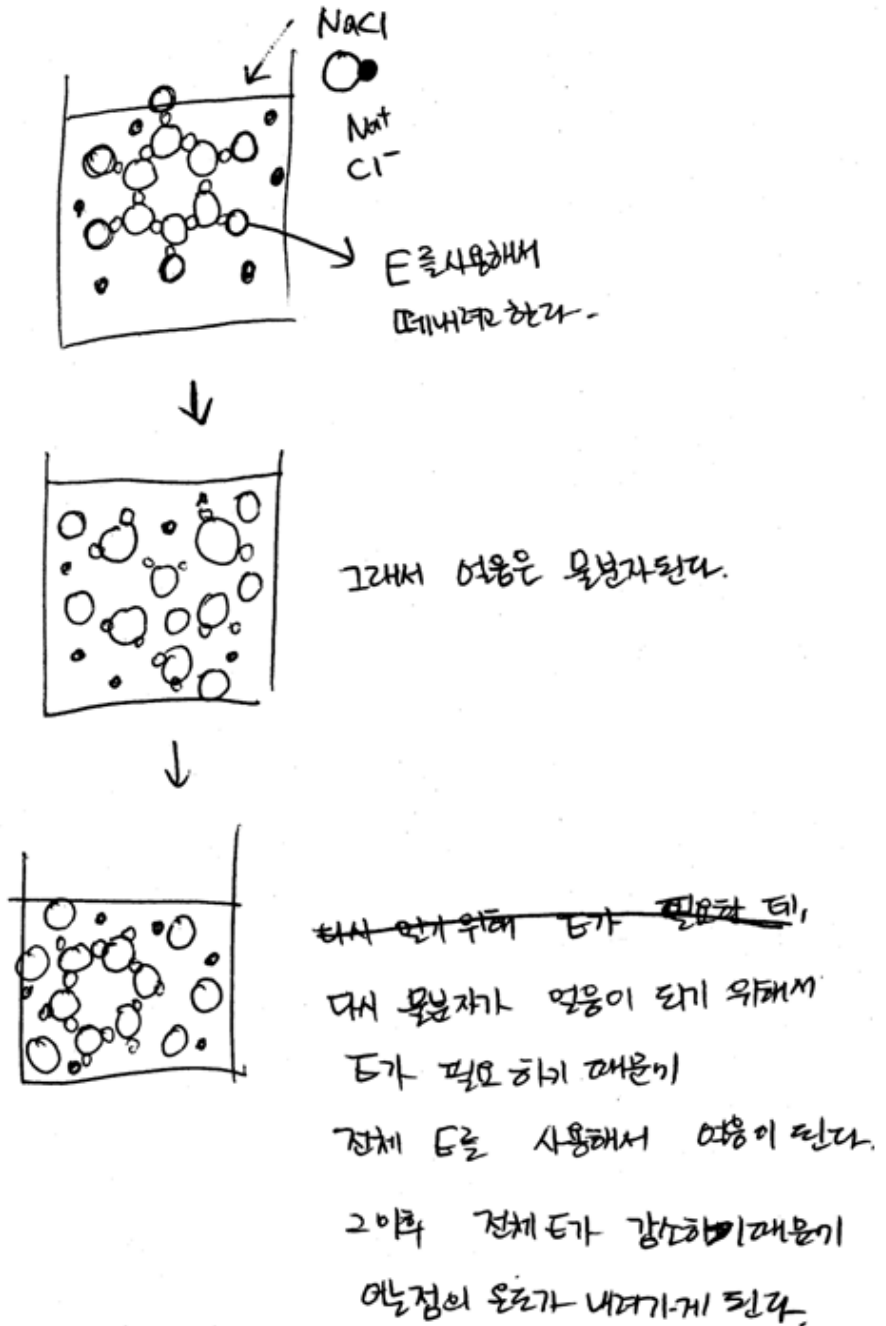 NaCl
Na+
Cl-
E를 사용해서
떼내려고 한다.
그래서 얼음은 물분자된다.
다시 얼기 위해 E가 필요한 데,
다시 물분자가 얼음이 되기 위해서
E가 필요 하기 때문에
전체 E를 사용해서 얼음이 된다.
그 이후 전체 E가 감소하기 때문에
어는점의 온도가 내려가게 된다.